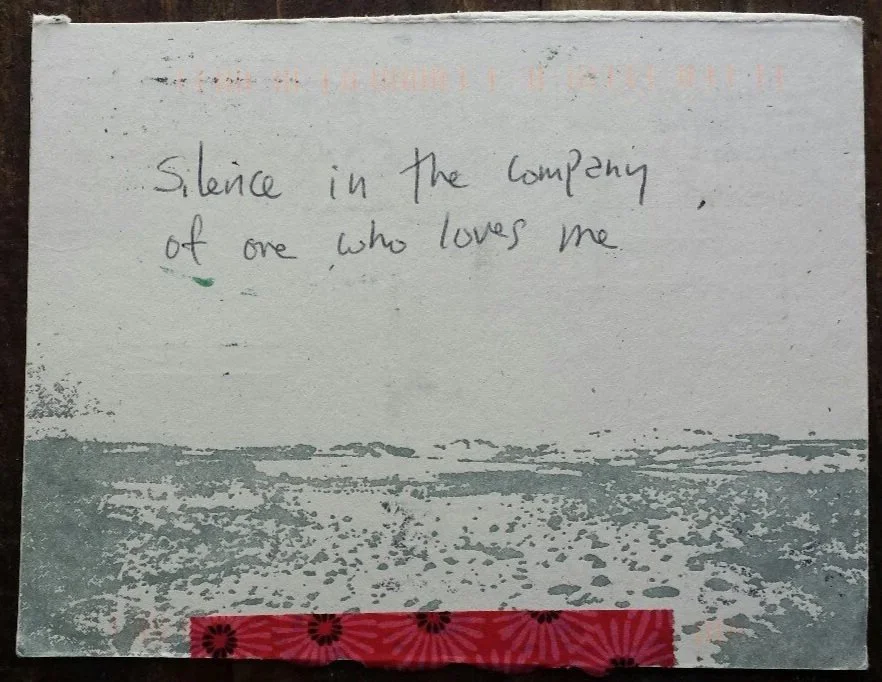 Silence in the company
of one who loves me